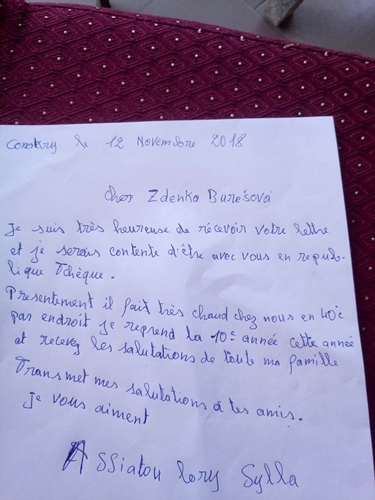 Conakry le 12 Novembre 2018
cher Zdenka Burešová
Je suis très heureuse de récevoir votre lettre
et je serais contente d'être avec vous en repub-
lique Tchèque.
Presentement il fait très chaud chez nous en 40°c
par endroit je reprend la 10e année cette année
et recevez les salutations de toute ma famille
Transmet mes salutations à tes amis.
Je vous aiment
Assiatou Lory Sylla